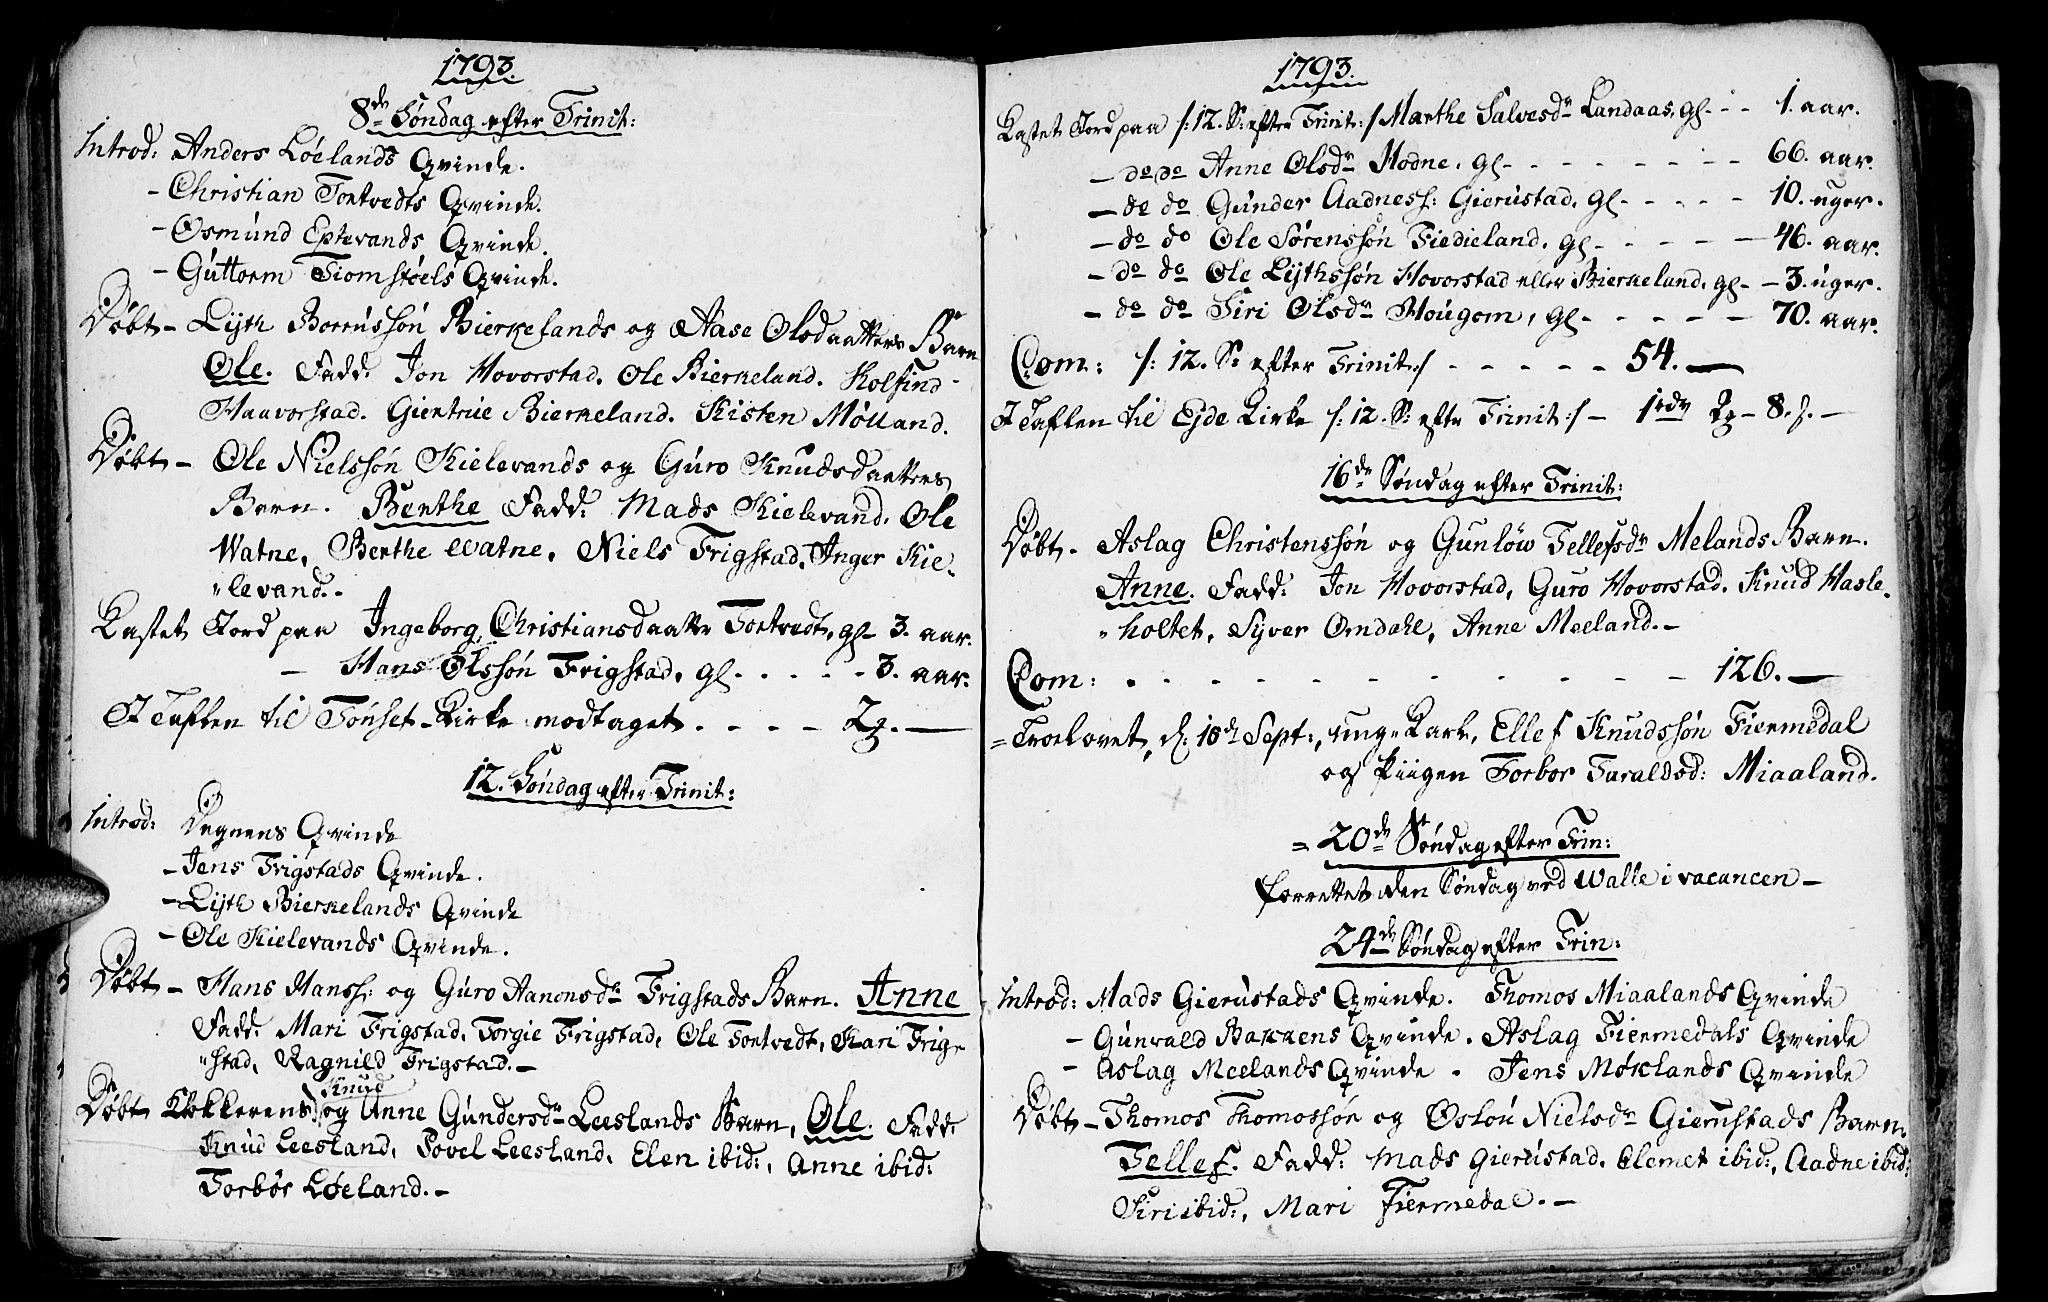 1793.
8de Søndag efter Trinit:
Introd: Anders Løelands Qvinde.
- Christian Tortvedts Qvinde.
- Osmund Eptevands Qvinde.
- Guttorm Tiomstøels Qvinde.
Døbt - Lijth Borrussøn Bierkelands og Aase Olsdaatters Barn
Ole. Fadd: Jon Hovorstad. Ole Bierkeland. Kolfind
Haavorstad. Giertrue Bierkeland. Kisten Mølland.
Døbt - Ole Nielssøn Kielevands og Guro Knudsdaatters
Barn. Berthe Fadd: Mads Kielevand. Ole
Watne, Berthe Watne, Niels Frigstad, Inger Kie-
"levand.-
Kastet Jord paa Ingeborg Christiansdaatter Tortvedt, gl- 3. aar.
- Hans Olssøn Frigstad, gl - - - - - 3. aar.
I Taflen til Fonset-Kirke modtaget - - - - 2
12. Søndag efter Trinit:
Introd: Degnens Qvinde
- Jens Frigstads Qvinde.
- Lijth Bierkelands Qvinde
- Ole Kielevands Qvinde.
Døbt - Hans Hanss: og Guro Aanonsdr Frigstads Barn. Anne
Fadd: Mari Frigstad, Torgie Frigstad, Ole Tortvedt, Kari Frig-
"stad, Ragnild Frigstad.-
Knud
Døbt Klokkerens og Anne Gundersdr Leeslands Barn, Ole. Fadd:
Knud Leesland, Povel Leesland, Elen ibid:, Anne ibid:
Torbør Løeland.-
1793.
Kastet Jord paa /:12. S: efter Trinit:/ Marthe Salvesdr Landaas, gl - - 1. aar.
- do do Anne Olsdr Hodne, gl - - - - - - - - 66. aar.
- do do Gunder Aadness: Gierustad, gl - - - - - 10. uger.
- do do Ole Sørenssøn Fiedieland, gl - - - - - 46. aar.
- do do Ole Lijthssøn Hovorstad eller Bierkeland, gl - - 3. uger.
- do do Siri Olsdr Hougom, gl - - - - - - 70. aar.
Com: /: 12. S: efter Trinit:/ - - - - - 54.-
I Taflen til Ejde Kirke /:12. S: efter Trinit:/ - 1rdr 2 - 8 s. -
16de Søndag efter Trinit:
Døbt - Aslag Christenssøn og Gunløw Tellefsdr Melands Barn.
Anne. Fadd: Jon Hovorstad, Guro Hovorstad. Knud Hasle-
"holtet, Syver Omdahl, Anne Meeland.-
Com: - - - - - - - - - - - 126.-
=Troelovet, d: 18de Sept:, unge Karl, Ellef Knudssøn Fiermedal
og Piigen Torbor Taraldsd: Miaaland.
= 20de Søndag efter Trin:
forrettet den Søndag ved Walle i vacancen -
24de Søndag efter Trin:
Introd: Mads Gierustads Qvinde. Thomos Miaalands Qvinde
- Gunvald Bakkens Qvinde. Aslag Fiermedals Qvinde
- Aslag Meelands Qvinde - Jens Møklands Qvinde
Døbt - Thomos Thomossøn og Øslou Nielsdr Gierustads Barn:
Tellef. Fadd: Mads Gierustad. Clemet ibid:, Aadne ibid:
Siri ibid:, Mari Fiermedal.-